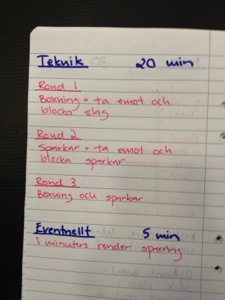 Teknik 20 min
Rond 1
Boxning = ta emot och
blocka slag
Rond 2
Sparkar = ta emot och
blocka sparkar
Rond 3
Boxning och sparkar
Eventuellt 5 min
1 minuters ronder sparring